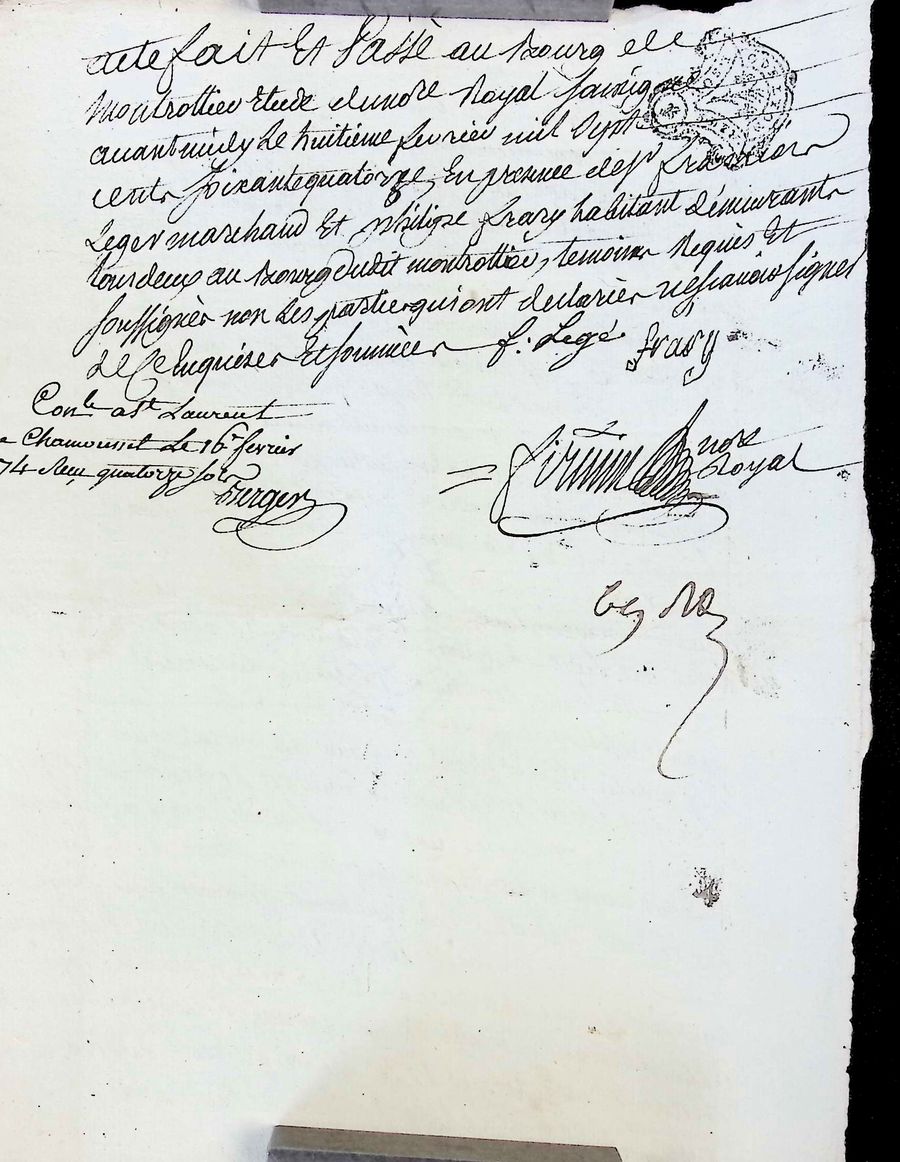 acte fait Et Passé au Bourg de
Montrottier Etude dunore Royal soussigné
avant midy Le huitième fevrier mil sept
cents soixante quatorze, En presence de sr françois
Leger marchand Et philipe frary habitant démeurants
tous deux au Bourg dudit montrottier, temoins Requis Et
soussignés non Les parties qui ont declarées ne scavoir signer
de ce Enquises Et sommées f. Legé frary
Conle a St Laurent
Chamousset Le 16e fevrier
74 Reçu quatorze sols
Berger
nore
Royal